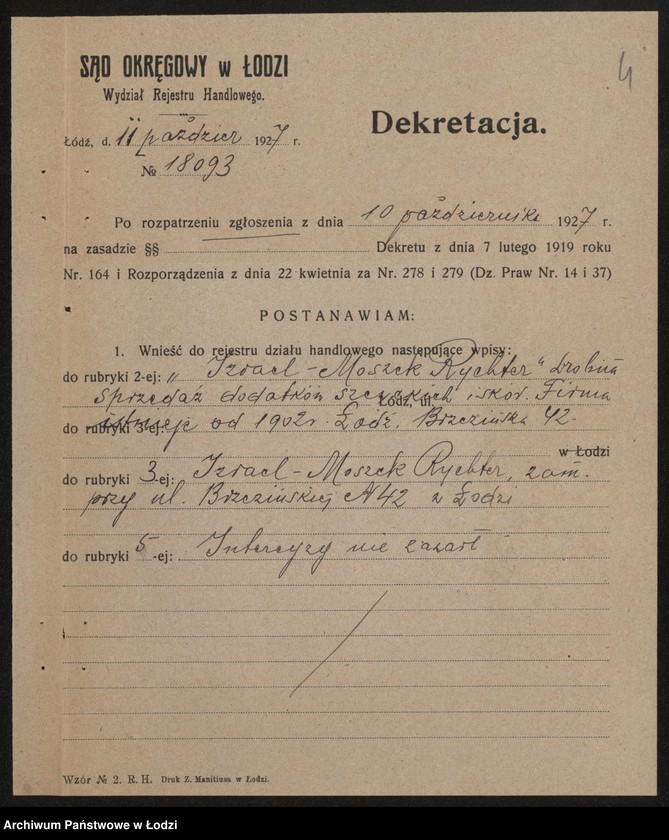 4
SĄD OKRĘGOWY w ŁODZI
Wydział Rejestru Handlowego.
Dekretacja.
Łódź, d. 11 paździer 1927 r.
№ 18093
Po rozpatrzeniu zgłoszenia z dnia 10 października 1927 r.
na zasadzie §§ Dekretu z dnia 7 lutego 1919 roku
Nr. 164 i Rozporządzenia z dnia 22 kwietnia za Nr. 278 i 279 (Dz. Praw Nr. 14 i 37)
POSTANAWIAM:
1. Wnieść do rejestru działu handlowego następujące wpisy:
do rubryki 2-ej: „Izrael-Moszek Rychter" drobna
sprzedaż dodatków szewskich i skór. Firma
Łódź, ul.
do rubryki 3-ej: istnieje od 1902 r. Łódź, Brzezińska 42.
w Łodzi
do rubryki 3-ej: Izrael-Moszek Rychter, zam.
przy ul. Brzezińskiej N 42 w Łodzi
do rubryki 5-ej: Intercyzy nie zawarł
Wzór № 2. R. H. Druk Z. Manitiusa w Łodzi.
Archiwum Państwowe w Łodzi